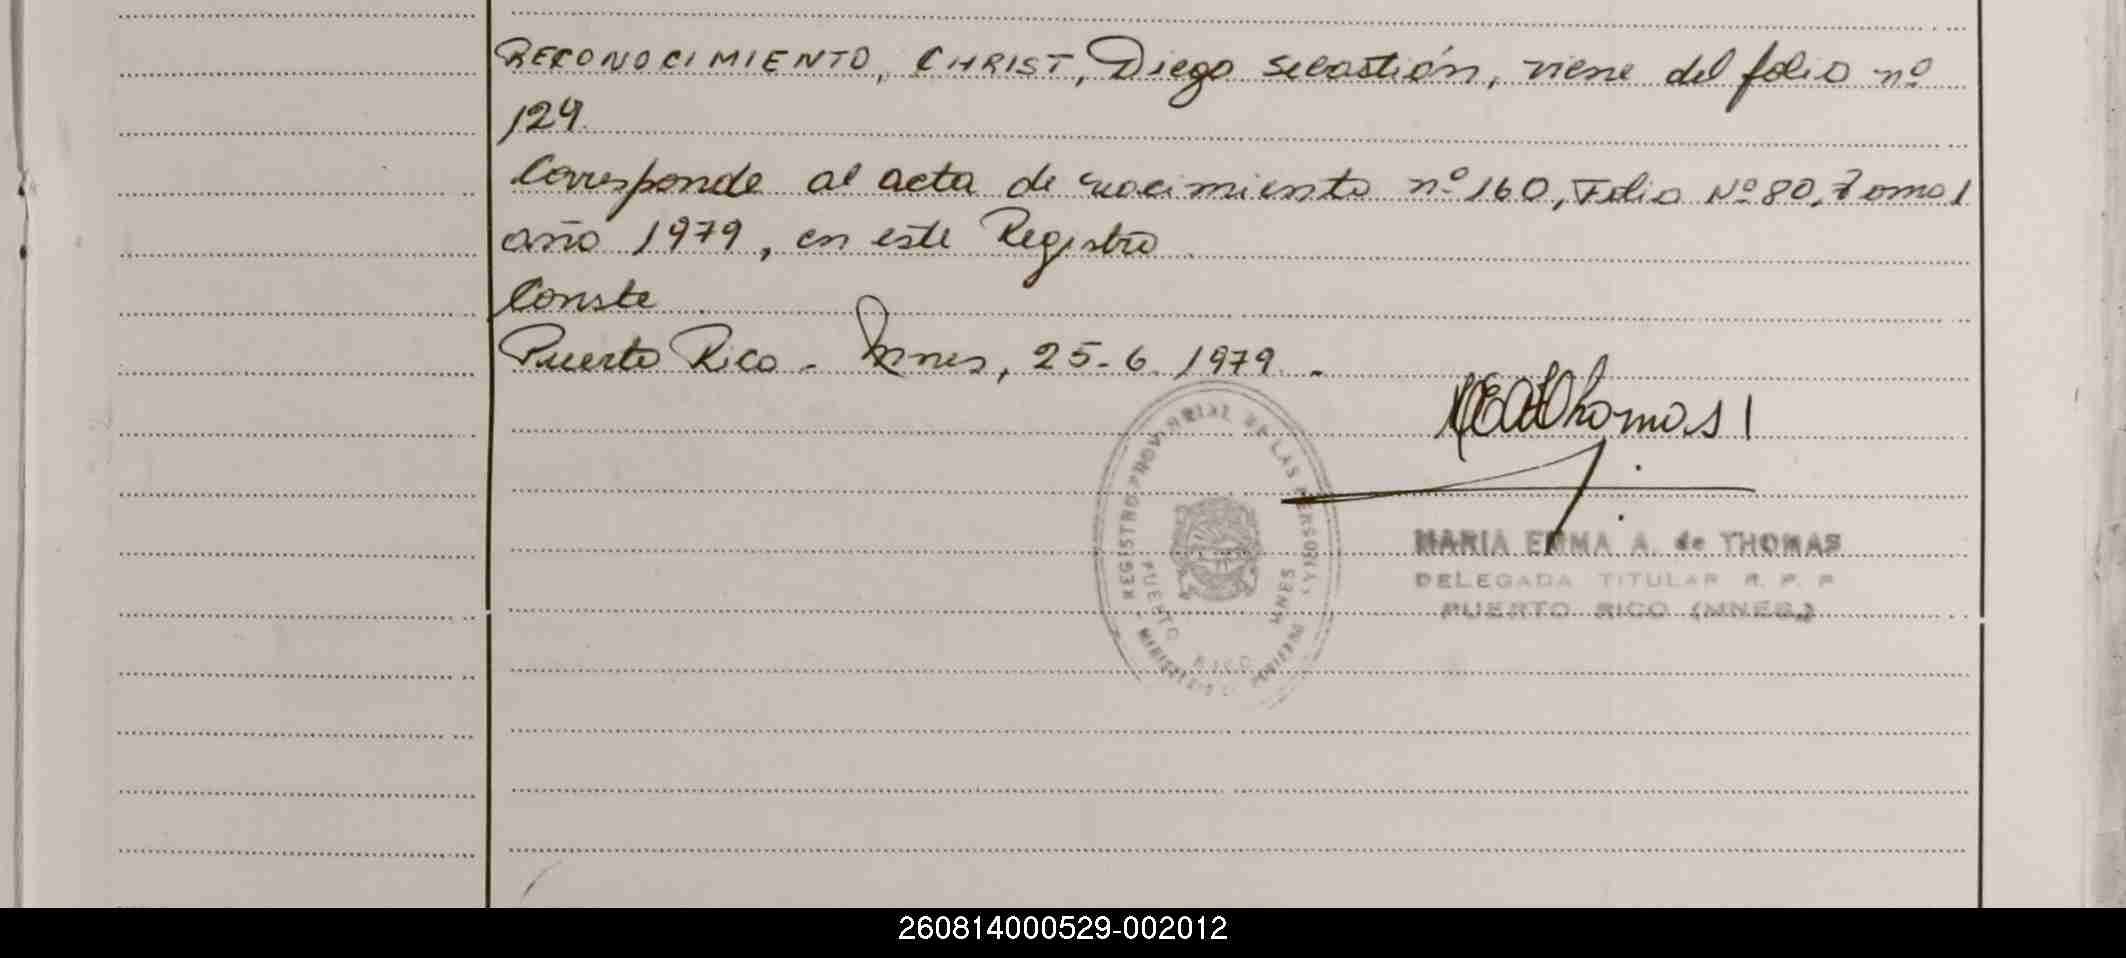 RECONOCIMIENTO, CHRIST, Diego Sebastián, viene del folio nº
124.
Corresponde al acta de nacimiento nº 160, Folio Nº 80, Tomo 1
año 1979, en este Registro.
Conste
Puerto Rico - Mnes, 25-6. 1979. -
MEAThomas
REGISTRO PROVINCIAL DE LAS PERSONAS
PUERTO RICO MNES
MINISTERIO DE GOBIERNO
MARIA EMMA A. de THOMAS
DELEGADA TITULAR R. P. P
PUERTO RICO (MNES.)
260814000529-002012